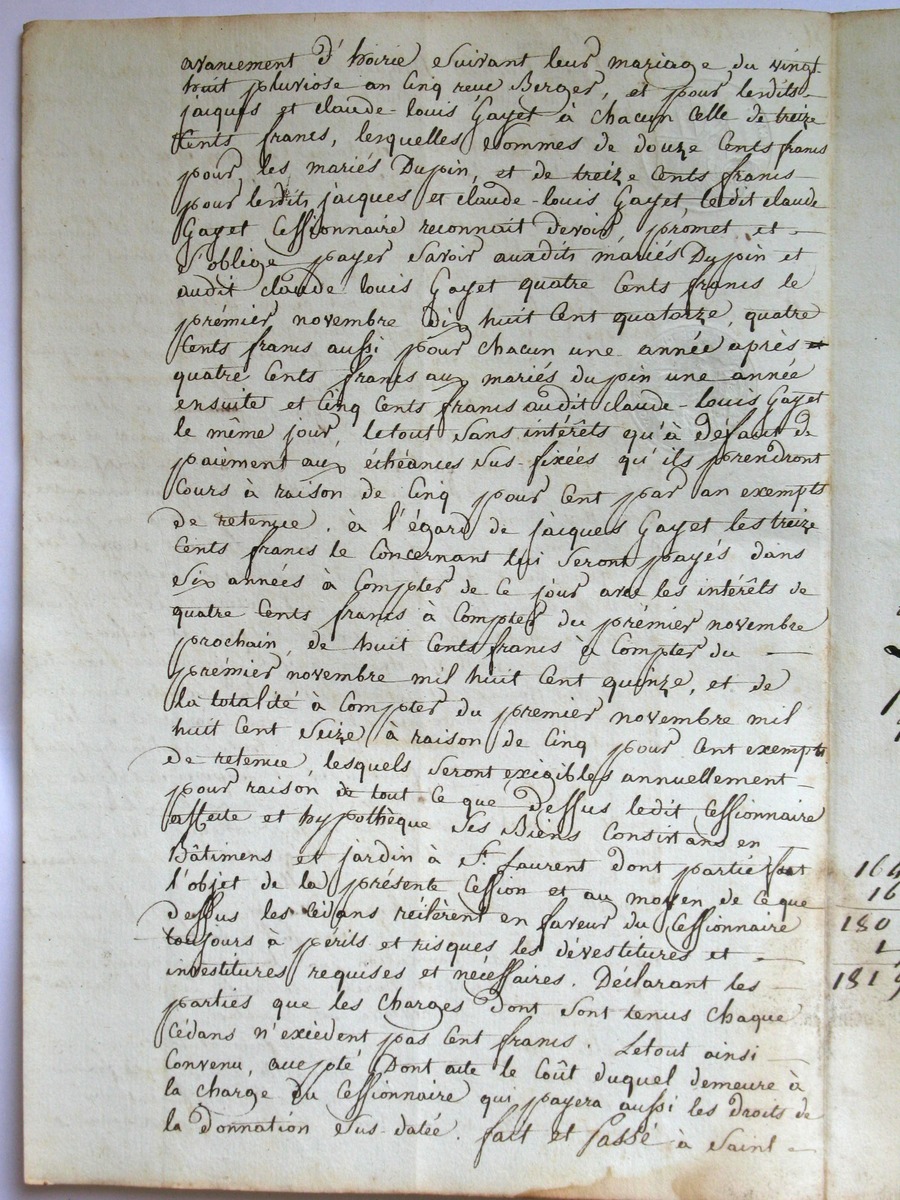 avancement d'hoirie suivant leur mariage du vingt
huit pluviose an cinq reçu Berger, et pour lesdits
jacques et claude-louis Gayet à chacun celle de treize
Cents francs, lesquelles sommes de douze Cents francs
pour les mariés Dupin, et de treize Cents francs
pour lesdits jacques et claude-louis Gayet ledit claude
Gayet Cessionnaire reconnait devoir, promet et
s'oblige payer savoir auxdits mariés Dupin et
audit claude louis Gayet quatre Cents francs le
prémier novembre Dix huit Cent quatorze, quatre
Cents francs aussi pour chacun une année après et
quatre Cents francs aux mariés dupin une année
ensuite et Cinq Cents francs audit claude-louis Gayet
le même jour, letout sans intérêts qu'à défaut de
paiement aux échéances sus-fixées qu'ils prendront
Cours à raison de Cinq pour Cent par an exempts
de retenue. èà l'égard de jàcques Gayet les treize
Cents francs le Concernant lui seront payés dans
six années à Compter de ce jour avec les intérêts de
quatre Cents francs à Compter du prémier novembre
prochain, de huit Cents francs à Compter du
prémier novembre mil huit Cent quinze, et de
la totalité à Compter du premier novembre mil
huit Cent seize à raison de Cinq pour Cent exempts
de retenue, lesquels seront exigibles annuellement
pour raison de tout Ce que Dessus ledit Cessionnaire
affecte et hypothèque ses Biens Consistans en
Bâtimens et jardin à St. Laurent dont partie fait
l'objet de la présente Cession et au moyen de Ce que
dessus les Cédans réiterent en faveur du Cessionnaire
toujours à périls et risques les dévestitures et
investitures requises et nécessaires. Déclarant les
parties que les Charges dont sont tenus chaque
Cédans n'excèdent pas Cent francs. Letout ainsi
Convenu, accepté Dont acte le Coût duquel demeure à
la charge du Cessionnaire qui payera aussi les Droits de
la donnation sus-datée. fait et Passé à Saint
164
16
180
1
181 9